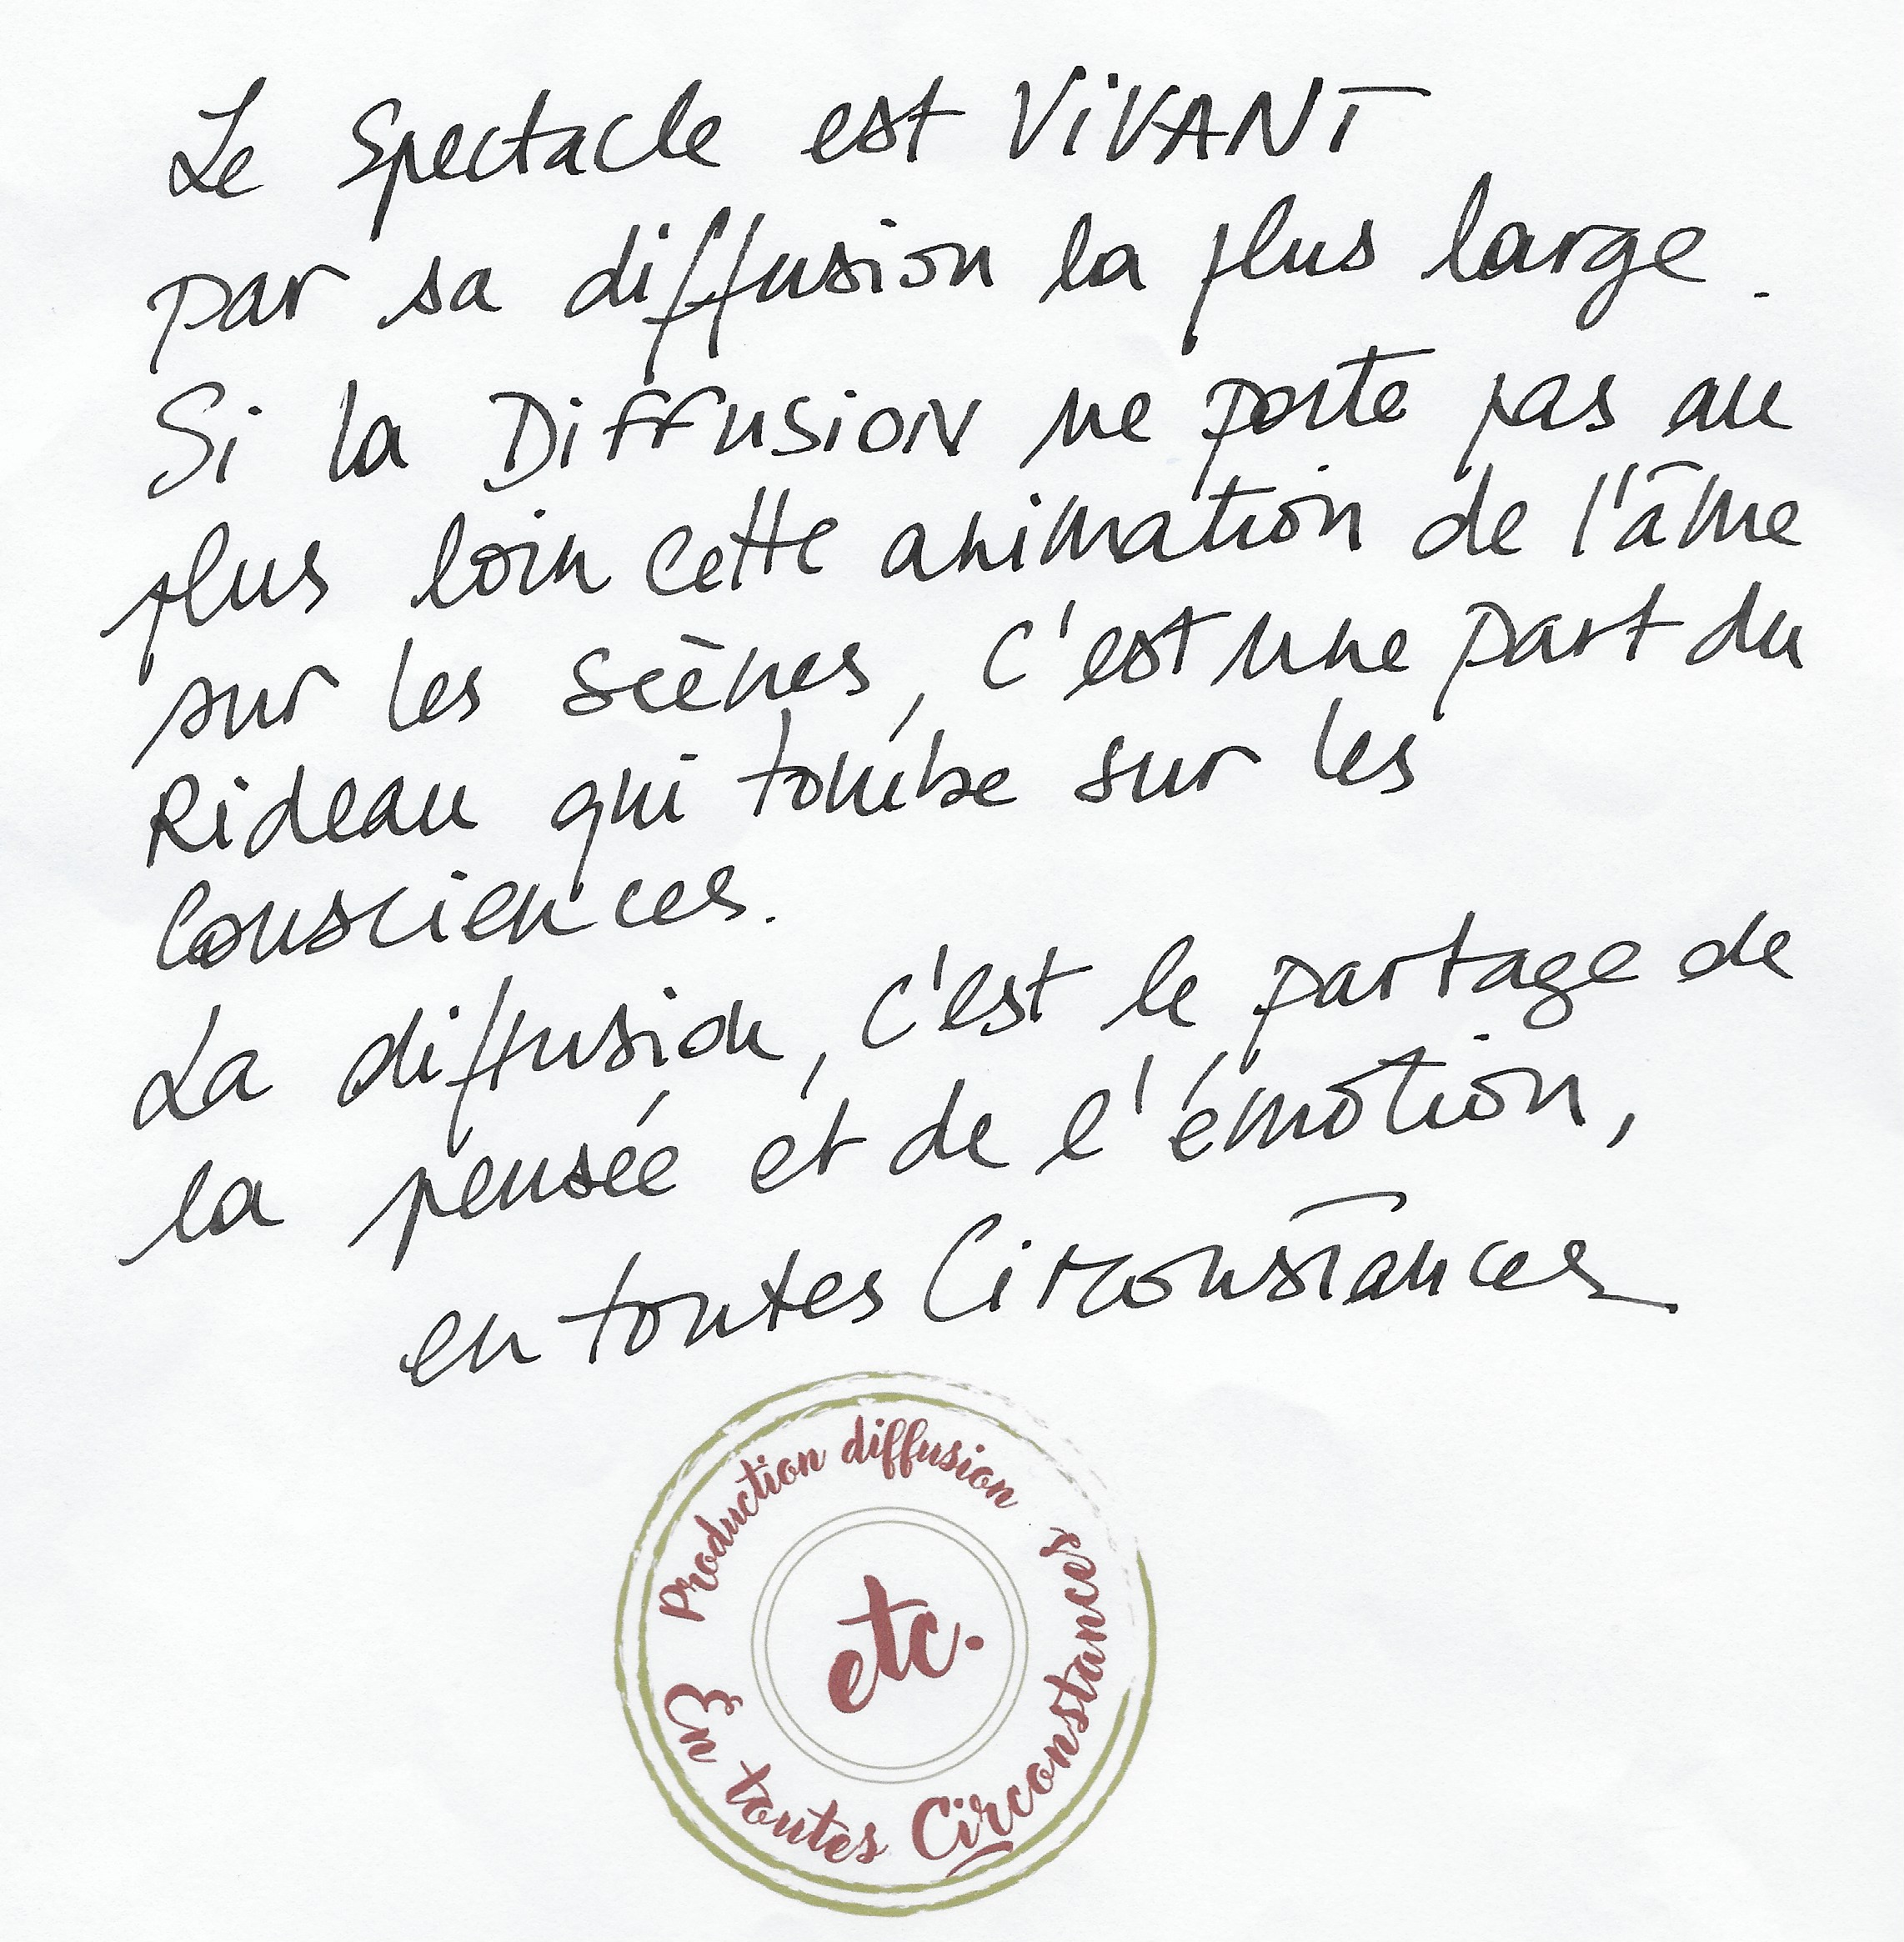 Le Spectacle est ViVANT
par sa diffusion la plus large.
Si la DiffusioN ne porte pas au
plus loin cette animation de l'âme
sur les scènes, c'est une part du
Rideau qui tombe sur les
Consciences.
La diffusion, c'est le partage de
la pensée et de l'émotion,
en toutes Circonstances
Production diffusion
etc.
En toutes Circonstances